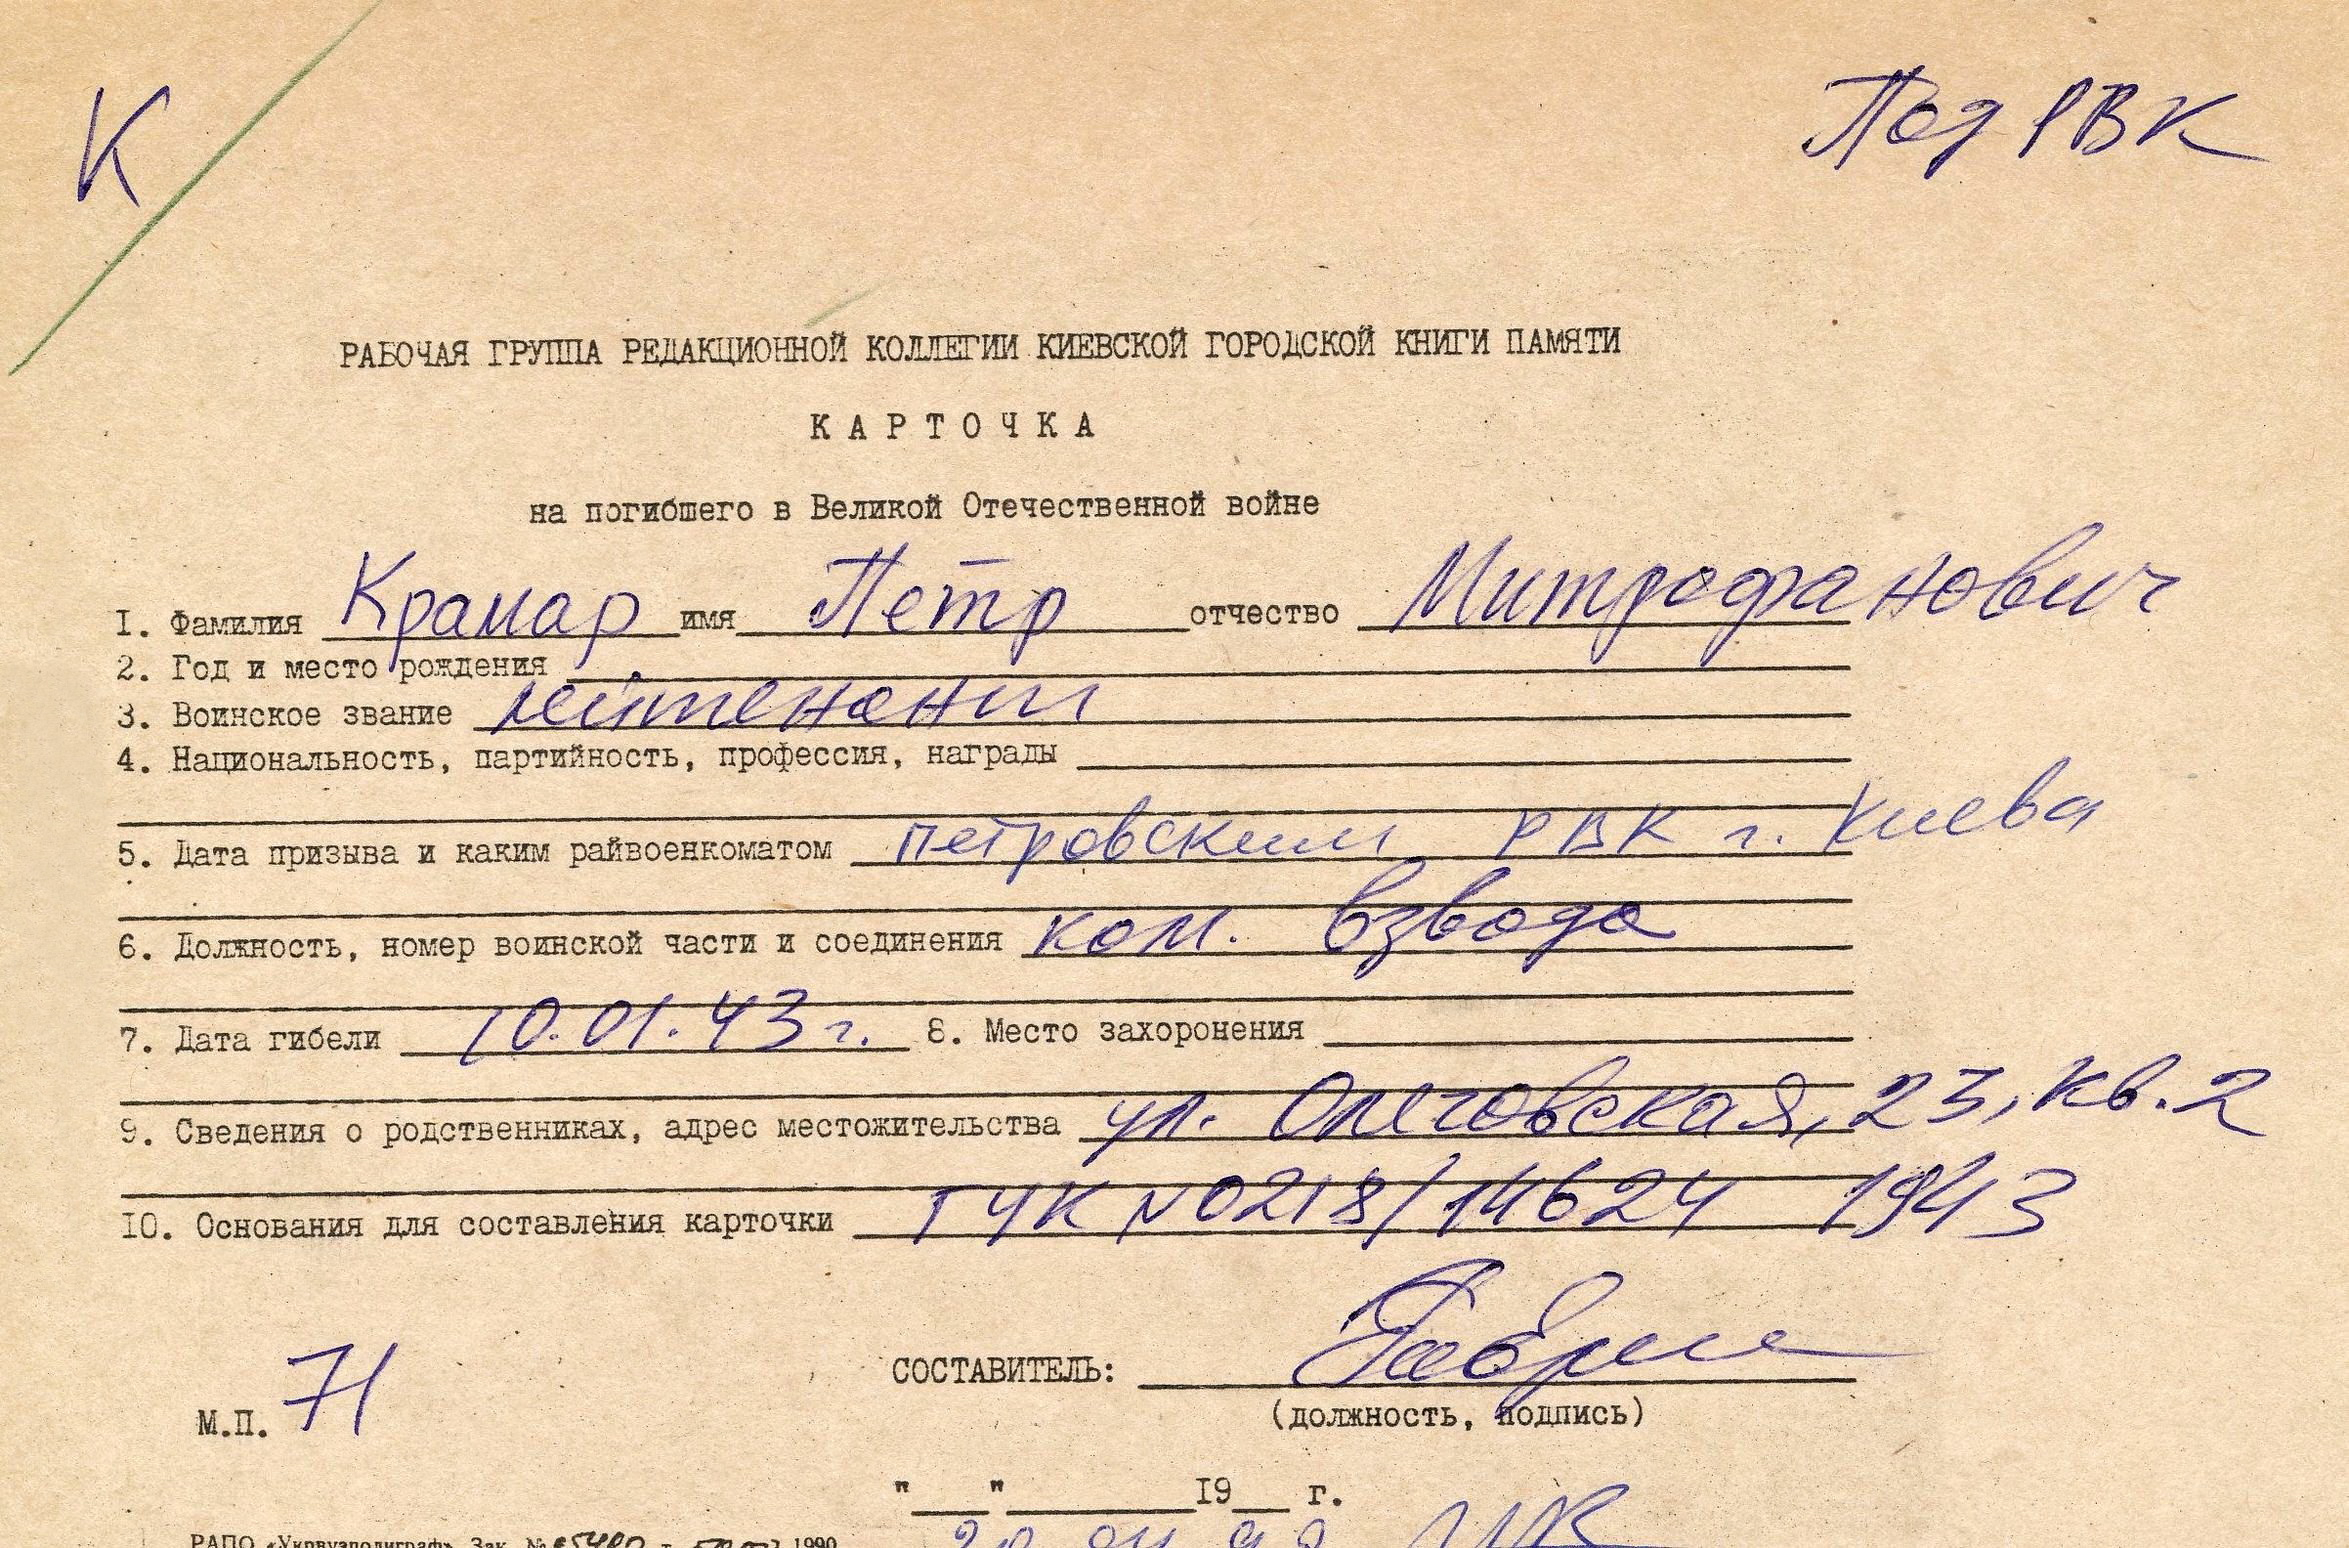 К
Под РВК
РАБОЧАЯ ГРУППА РЕДАКЦИОННОЙ КОЛЛЕГИИ КИЕВСКОЙ ГОРОДСКОЙ КНИГИ ПАМЯТИ
КАРТОЧКА
на погибшего в Великой Отечественной войне
I. Фамилия Крамар имя Петр отчество Митрофанович
2. Год и место рождения
3. Воинское звание лейтенант
4. Национальность, партийность, профессия, награды
5. Дата призыва и каким райвоенкоматом петровским РВК г. Киева
6. Должность, номер воинской части и соединения ком. взвода
7. Дата гибели 10.01.43 г. 8. Место захоронения
9. Сведения о родственниках, адрес местожительства ул. Олеговская, 23, кв. 2
IO. Основания для составления карточки ГУК №0218/14624 1943
СОСТАВИТЕЛЬ:
(должность, подпись)
М.П. 71
"___"________I9___ г.
РАПО «Укрвузполиграф» Зак. № 1990